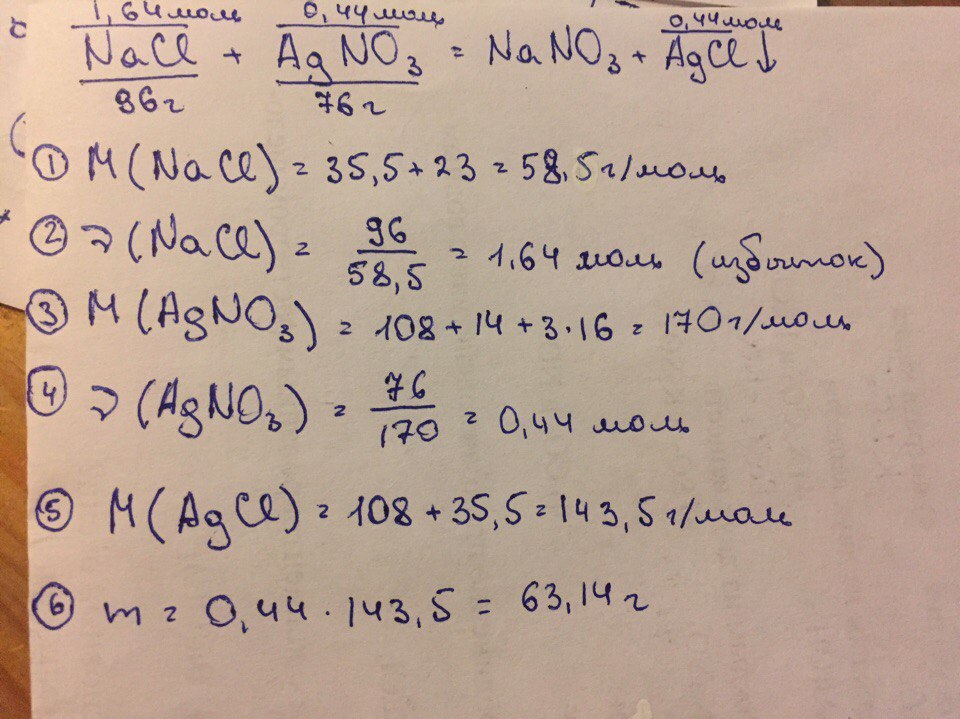 1,64 моль 0,44 моль 0,44 моль
NaCl + AgNO₃ = NaNO₃ + AgCl↓
96г 76г
① M(NaCl) = 35,5+23 = 58,5 г/моль
② ν(NaCl) = 96/58,5 = 1,64 моль (избыток)
③ M(AgNO₃) = 108 + 14 + 3·16 = 170 г/моль
④ ν(AgNO₃) = 76/170 = 0,44 моль
⑤ M(AgCl) = 108 + 35,5 = 143,5 г/моль
⑥ m = 0,44 · 143,5 = 63,14 г